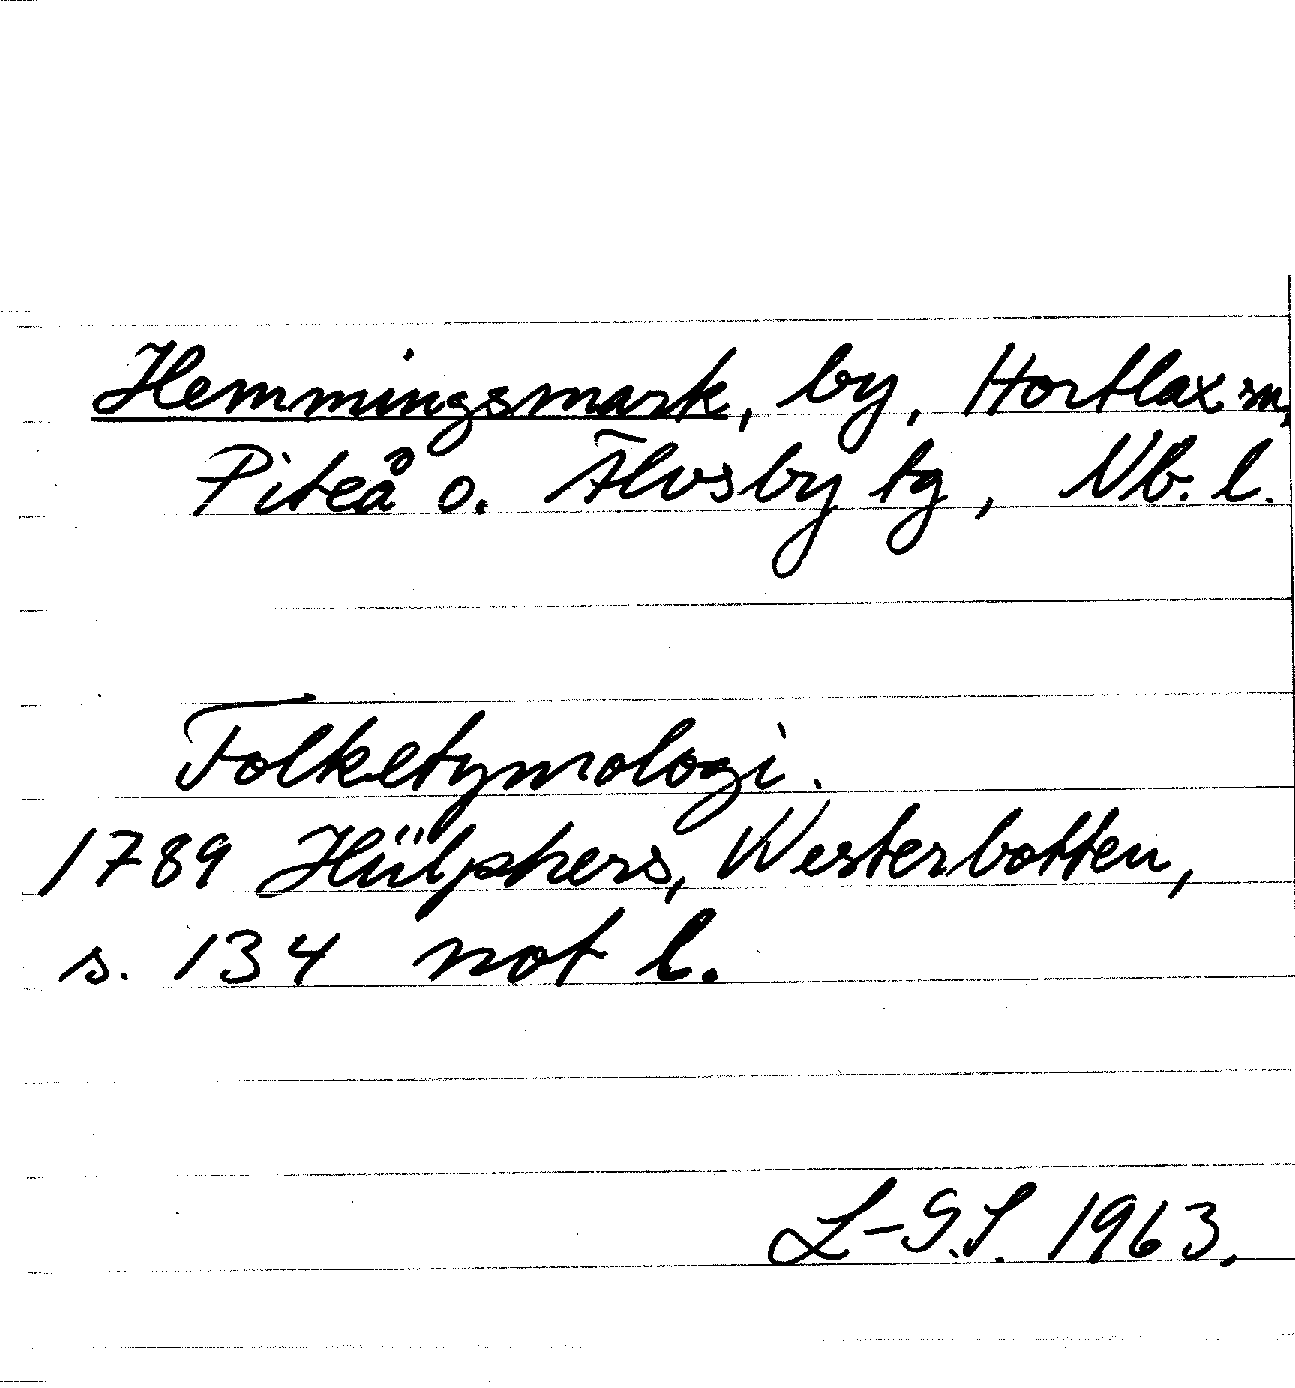 Hemmingsmark, by, Hortlax sn,
Piteå o. Älvsby tg, Nb. l.
Folketymologi.
1789 Hülphers, Westerbotten,
s. 134 not l.
L-G.S. 1963.